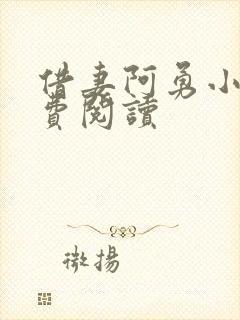 借妻阿勇小
費閱讀
微揚